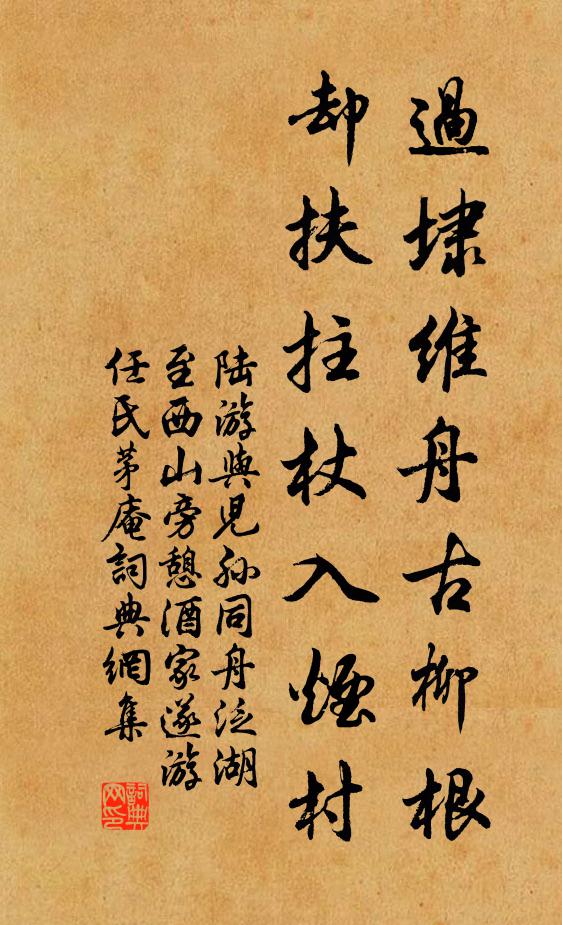 過埭維舟古柳根
却扶拄杖入煙村
陸游與兒孫同舟泛湖
至西山旁憩酒家遂游
任氏茅庵詞典網集
詞典
网印